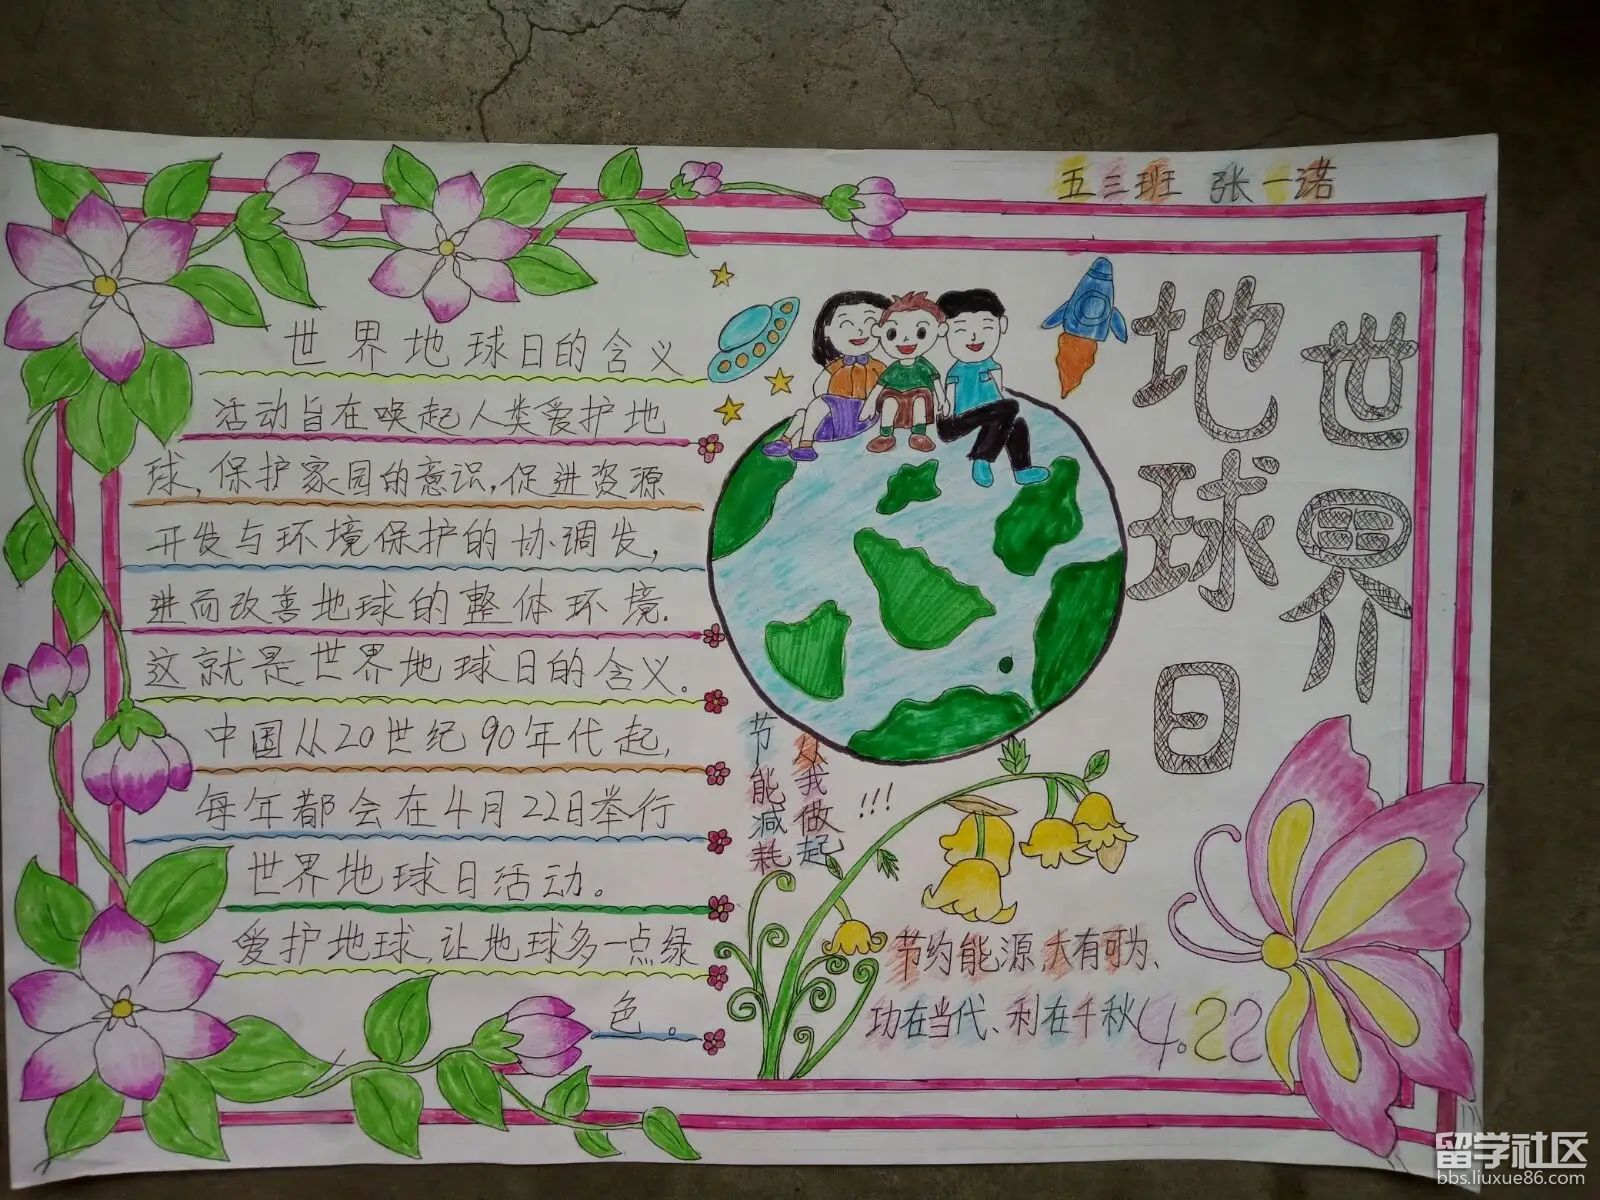 五三班 张一诺
世界
地球日
世界地球日的含义
活动旨在唤起人类爱护地
球,保护家园的意识,促进资源
开发与环境保护的协调发,
进而改善地球的整体环境.
这就是世界地球日的含义。
中国从20世纪90年代起,
每年都会在4月22日举行
世界地球日活动。
爱护地球,让地球多一点绿
色。
节能减耗
从我做起
!!!
节约能源,大有可为、
功在当代、利在千秋
4.22
留学社区
bbs.liuxue86.com